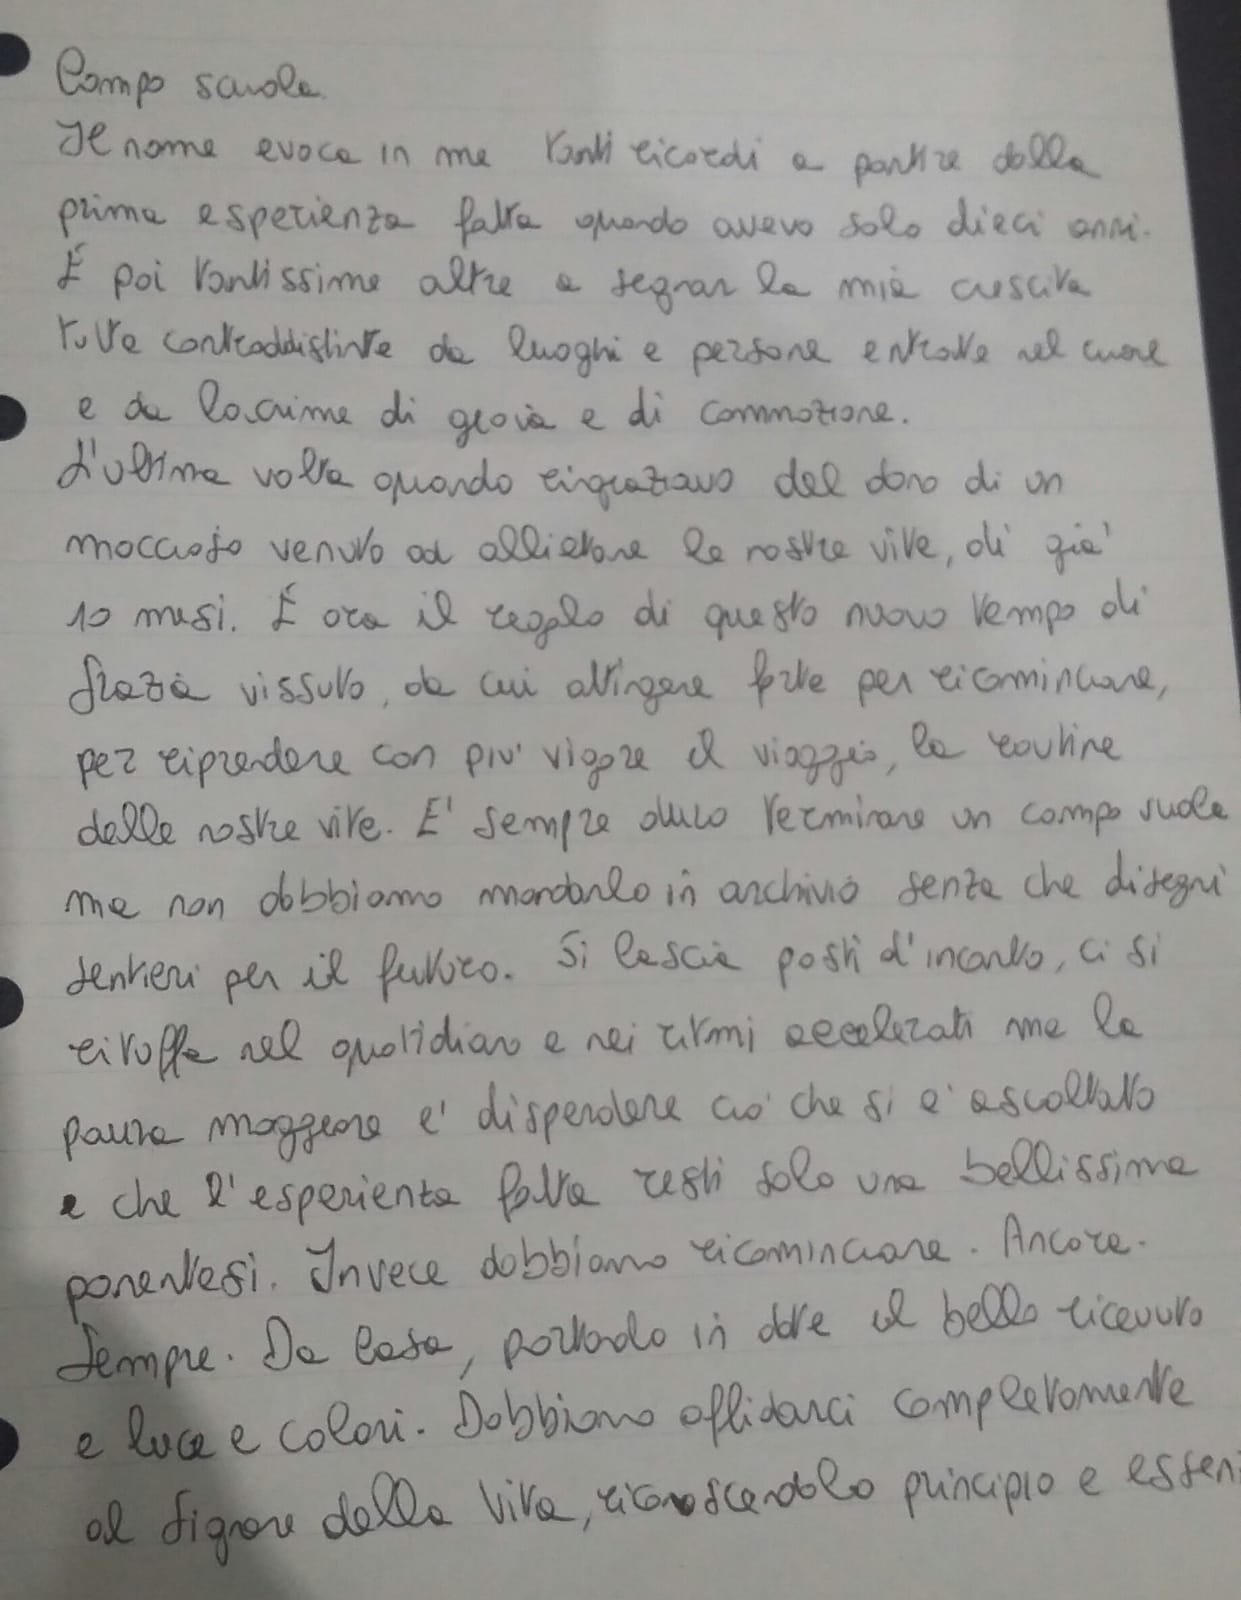 Campo scuola.
Il nome evoca in me tanti ricordi a partire dalla
prima esperienza fatta quando avevo solo dieci anni.
E poi tantissime altre a segnar la mia crescita
tutte contraddistinte da luoghi e persone entrate nel cuore
e da lacrime di gioia e di commozione.
L'ultima volta quando ringraziavo del dono di un
moccioso venuto ad allietare le nostre vite, di già
10 mesi. E ora il regalo di questo nuovo tempo di
Grazia vissuto, da cui attingere forze per ricominciare,
per riprendere con più vigore il viaggio, la routine
delle nostre vite. E' sempre duro terminare un campo suola
ma non dobbiamo mandarlo in archivio senza che disegni
sentieri per il futuro. Si lascia posti d'incanto, ci si
rituffa nel quotidiano e nei ritmi accelerati ma la
paura maggiore e' disperdere ciò che si e' ascoltato
e che l'esperienza fatta resti solo una bellissima
parentesi. Invece dobbiamo ricominciare. Ancora.
Sempre. Da casa, portando in dote il bello ricevuto
e luce e colori. Dobbiamo affidarci completamente
al Signore della Vita, riconoscendolo principio e